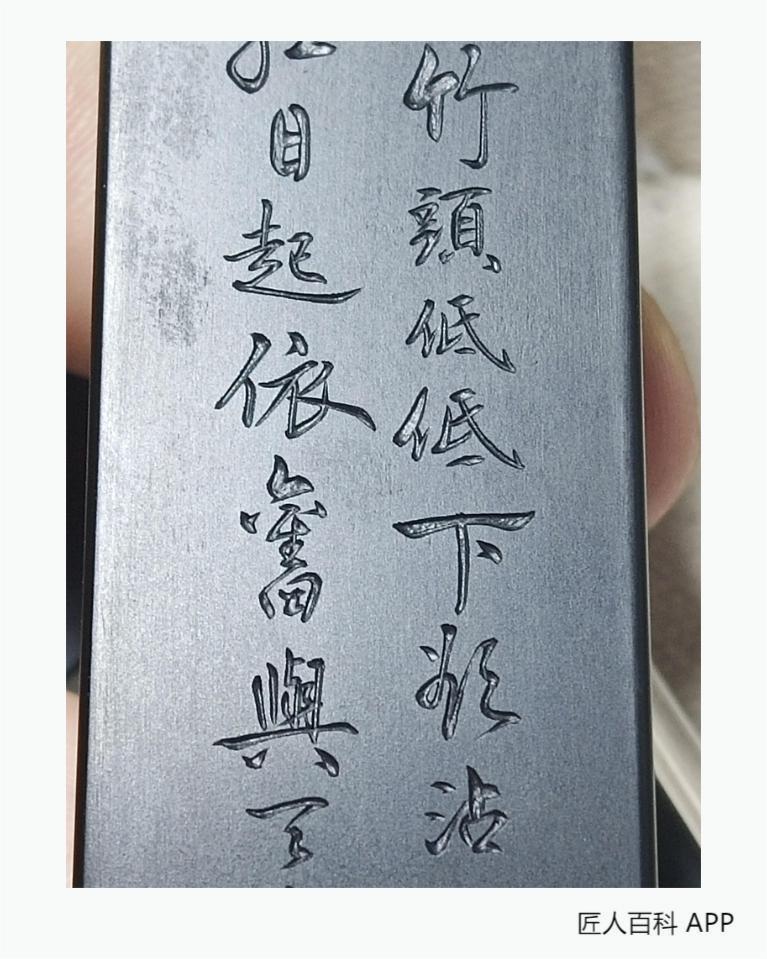 竹頭低低下欲沾
紅日起依舊與天
匠人百科 APP